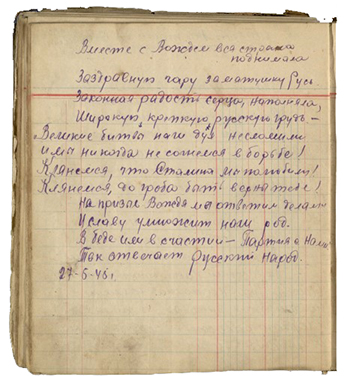 Вместе с Вождем вся страна
поднимала
Заздравную чару за матушку Русь
Законная радость сердца наполняла,
Широкую, крепкую русскую грудь –
Великие битвы наш дух не сломили
и мы никогда не согнемся в борьбе!
Клянемся, что Сталина мы полюбили!
Клянемся, до гроба быть верна тебе!
На призыв Вождя мы ответим делами
И славу умножит наш род.
В беде или в счастии – Партия с Нами
Так отвечает Русский Народ.
27-6-45 г